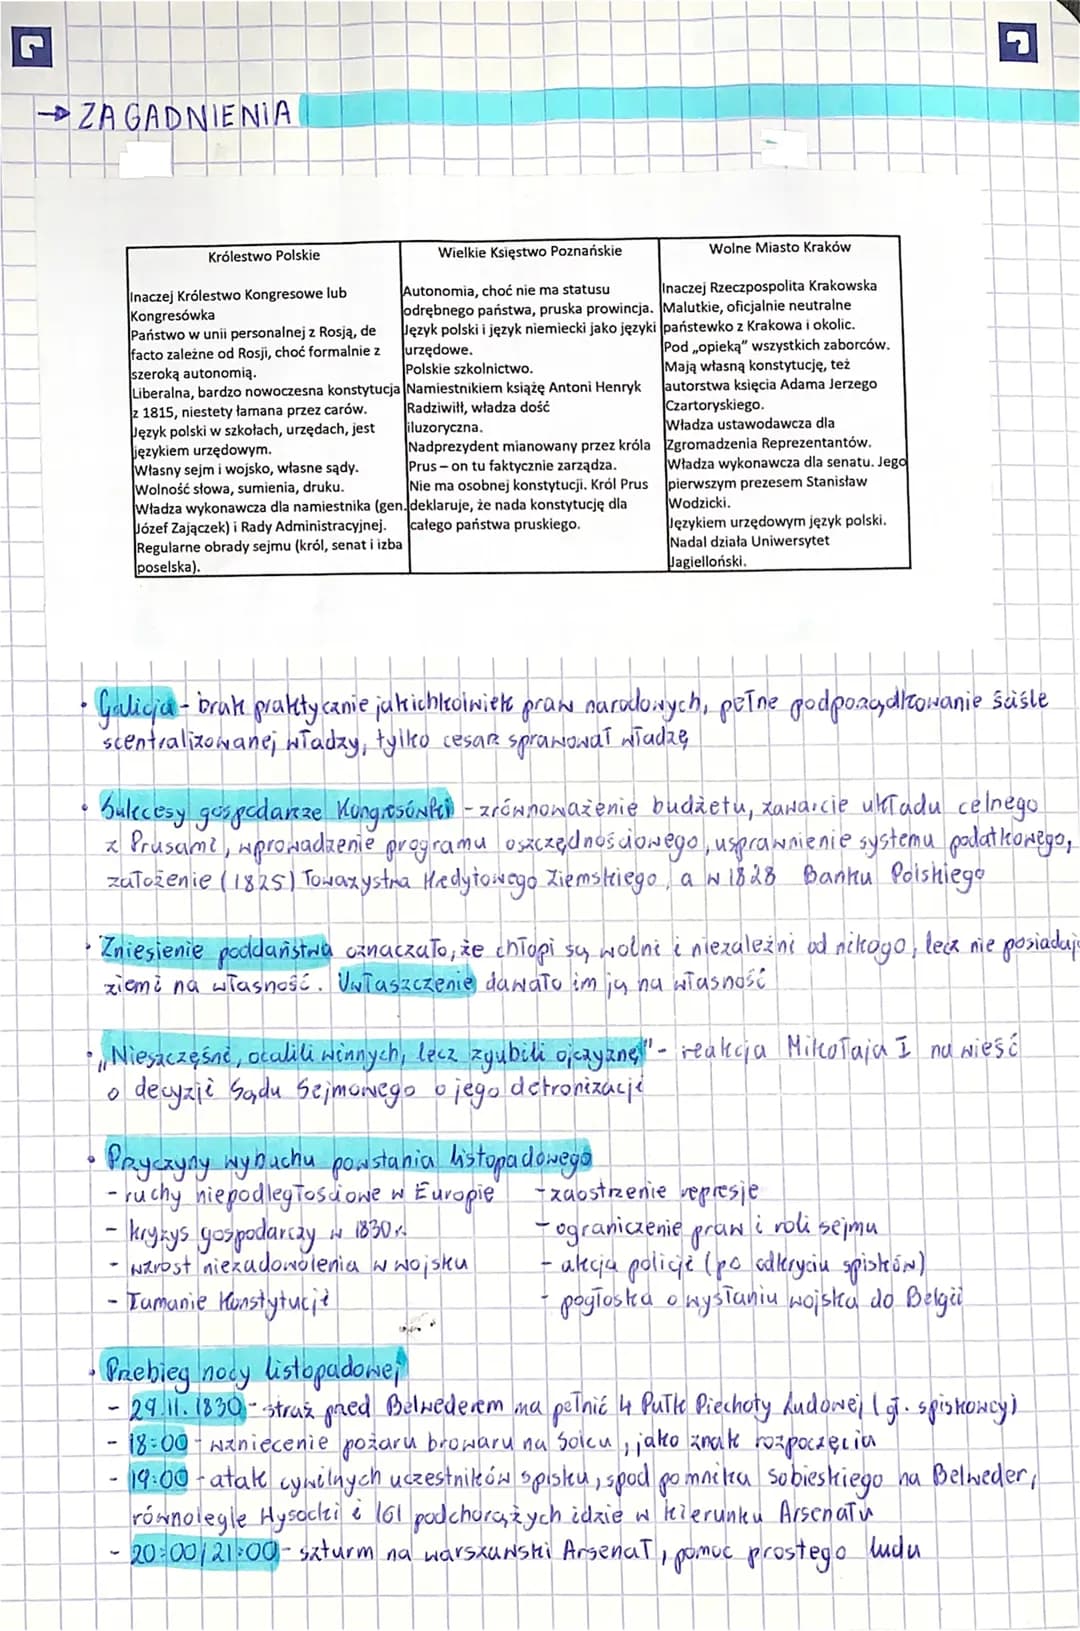 → ZAGADNIENIA
Królestwo Polskie
Inaczej Królestwo Kongresowe lub
Kongresówka
Państwo w unii personalnej z Rosją, de
facto zależne od Rosji, choć formalnie z
szeroką autonomią.
Liberalna, bardzo nowoczesna konstytucja
z 1815, niestety łamana przez carów.
Język polski w szkołach, urzędach, jest
językiem urzędowym.
Własny sejm i wojsko, własne sądy.
Wolność słowa, sumienia, druku.
Władza wykonawcza dla namiestnika (gen.
Józef Zajączek) i Rady Administracyjnej.
Regularne obrady sejmu (król, senat i izba
poselska).
Wielkie Księstwo Poznańskie
Autonomia, choć nie ma statusu
odrębnego państwa, pruska prowincja.
Język polski i język niemiecki jako języki
urzędowe.
Polskie szkolnictwo.
Namiestnikiem książę Antoni Henryk
Radziwiłł, władza dość
iluzoryczna.
Nadprezydent mianowany przez króla
Prus – on tu faktycznie zarządza.
Nie ma osobnej konstytucji. Król Prus
deklaruje, że nada konstytucję dla
całego państwa pruskiego.
Wolne Miasto Kraków
Inaczej Rzeczpospolita Krakowska
Malutkie, oficjalnie neutralne
państewko z Krakowa i okolic.
Pod „opieką” wszystkich zaborców.
Mają własną konstytucję, też
autorstwa księcia Adama Jerzego
Czartoryskiego.
Władza ustawodawcza dla
Zgromadzenia Reprezentantów.
Władza wykonawcza dla senatu. Jego
pierwszym prezesem Stanisław
Wodzicki.
Językiem urzędowym język polski.
Nadal działa Uniwersytet
Jagielloński.
• Galicja - brak praktycznie jakichkolwiek praw narodowych, pełne podporządkowanie ściśle
scentralizowanej władzy, tylko cesarz sprawował władzę
• Sukcesy gospodarze Kongresówki - zrównoważenie budżetu, zawarcie układu celnego
z Prusami, wprowadzenie programu oszczędnościowego, usprawnienie systemu podatkowego,
założenie (1825) Towarzystwa Kredytowego Ziemskiego, a w 1828 Banku Polskiego
• Zniesienie poddaństwa oznaczało, że chłopi są wolni i niezależni od nikogo, lecz nie posiadają
ziemi na własność. Uwłaszczenie dawało im ją na własność
• „Nieszczęśni, ocalili winnych, lecz zgubili ojczyznę" - reakcja Mikołaja I na wieść
o decyzji Sądu Sejmowego o jego detronizacji
• Przyczyny wybuchu powstania listopadowego
- ruchy niepodległościowe w Europie - zaostrzenie represje
- kryzys gospodarczy w 1830r. - ograniczenie praw i roli sejmu
- wzrost niezadowolenia w wojsku - akcja policji (po odkryciu spisków)
- łamanie Konstytucji - pogłoska o wysłaniu wojska do Belgii
• Przebieg nocy listopadowej
- 29.11.1830 - straż przed Belwederem ma pełnić 4 Pułk Piechoty Ludowej (gł. spiskowcy)
- 18:00 - wzniecenie pożaru browaru na Solcu, jako znak rozpoczęcia
- 19:00 - atak cywilnych uczestników spisku, spod pomnika Sobieskiego na Belweder,
równolegle Wysocki i 161 podchorążych idzie w kierunku Arsenału
- 20:00/21:00 - szturm na warszawski Arsenał, pomoc prostego ludu